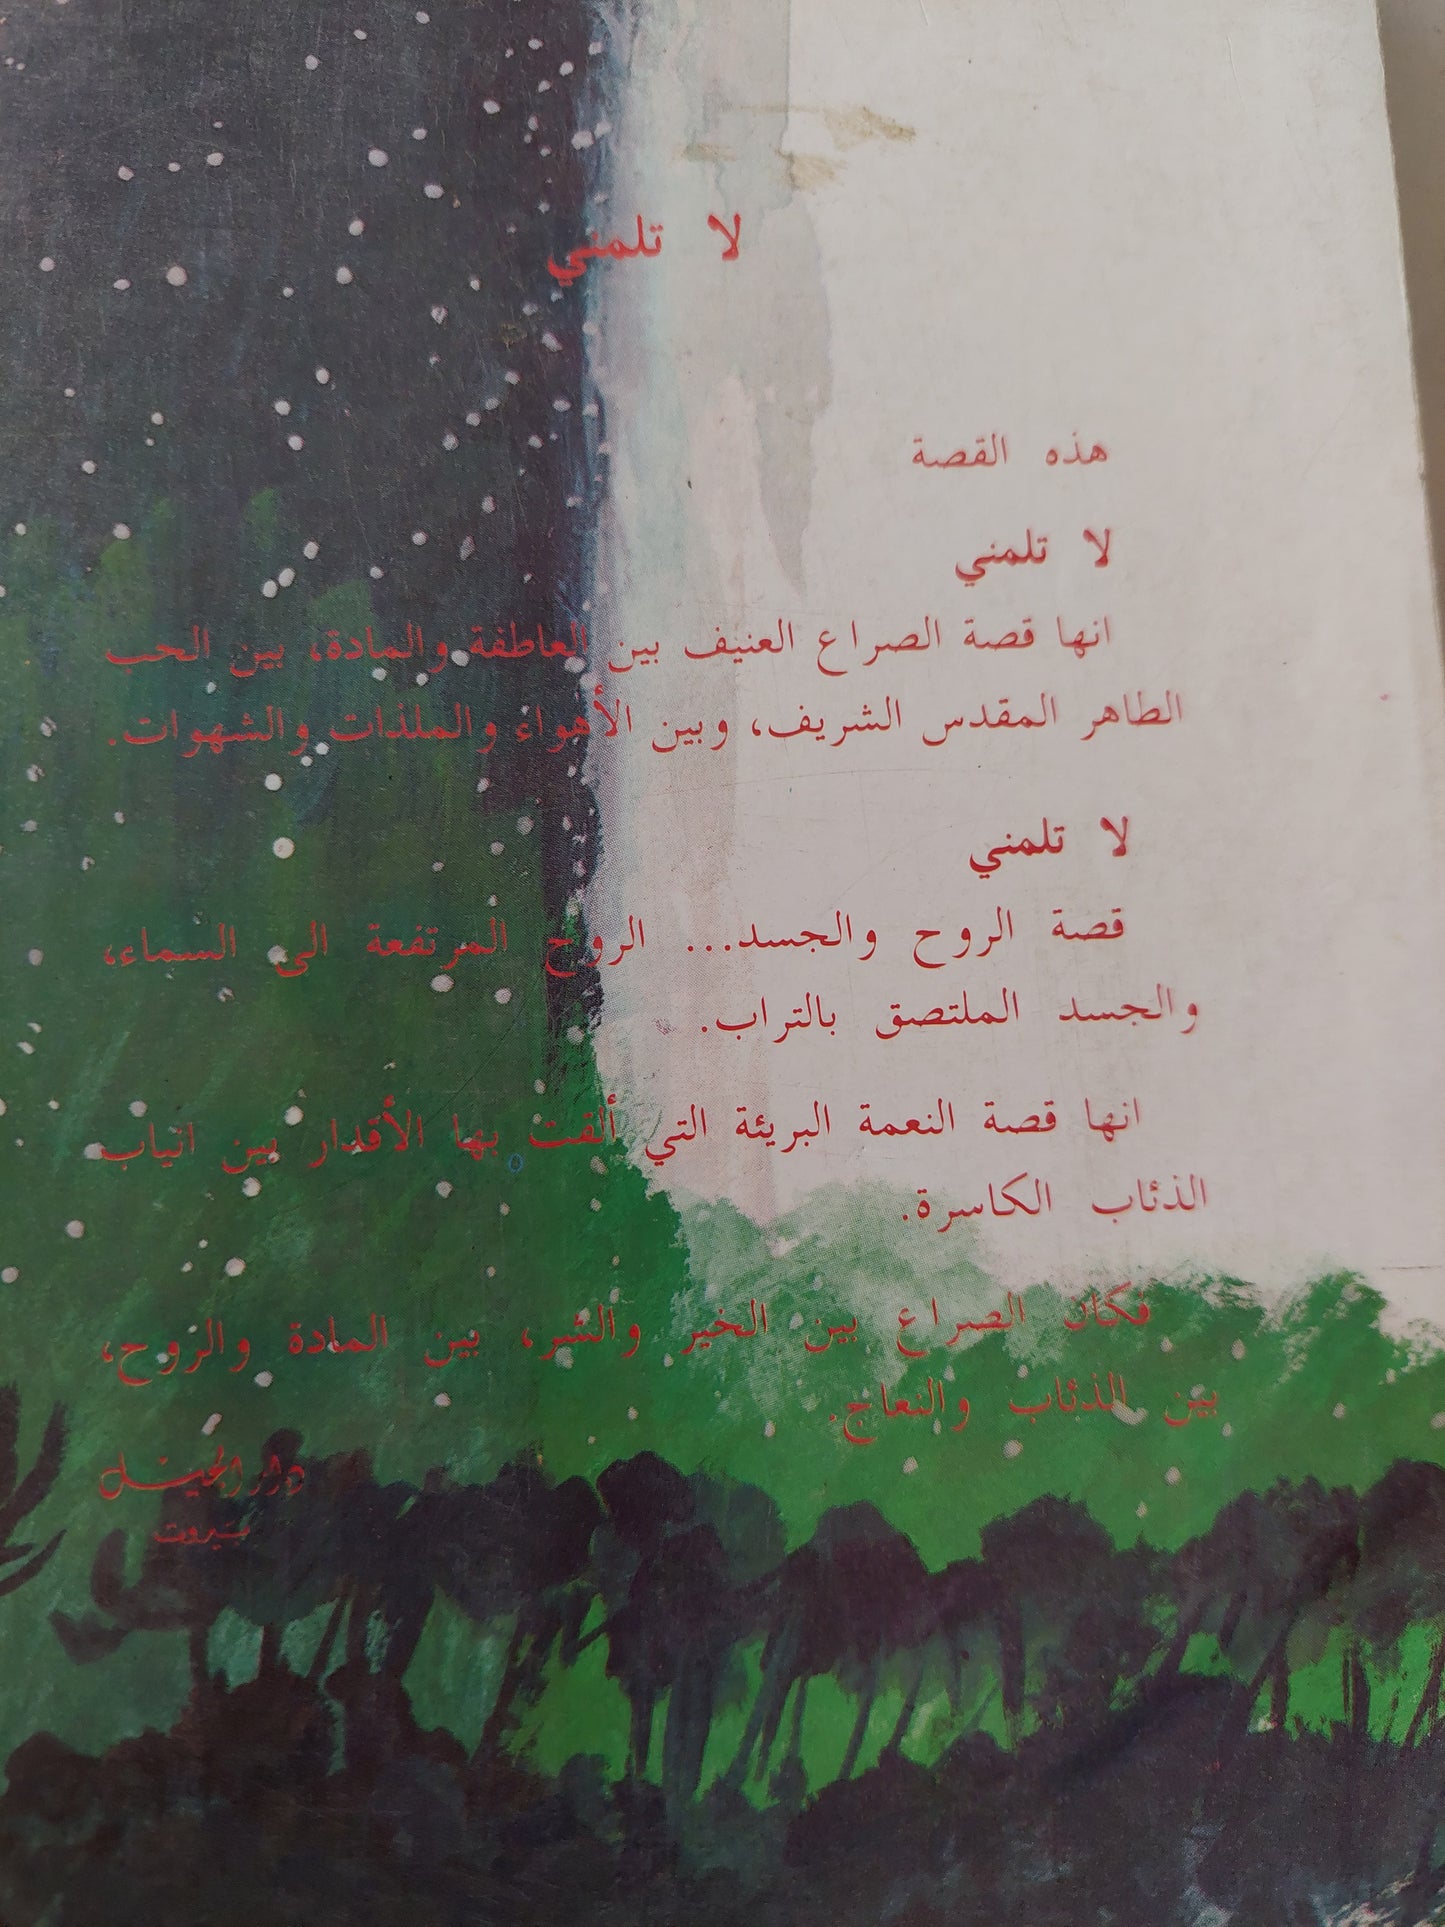 لا تلمني
هذه القصة
لا تلمني
انها قصة الصراع العنيف بين العاطفة والمادة، بين الحب
الطاهر المقدس الشريف، وبين الأهواء والملذات والشهوات.
لا تلمني
قصة الروح والجسد... الروح المرتفعة الى السماء،
والجسد الملتصق بالتراب.
انها قصة النعمة البريئة التي ألقت بها الأقدار بين انياب
الذئاب الكاسرة.
فكان الصراع بين الخير والشر، بين المادة والروح،
بين الذئاب والنعاج.
دار الجيل
بيروت